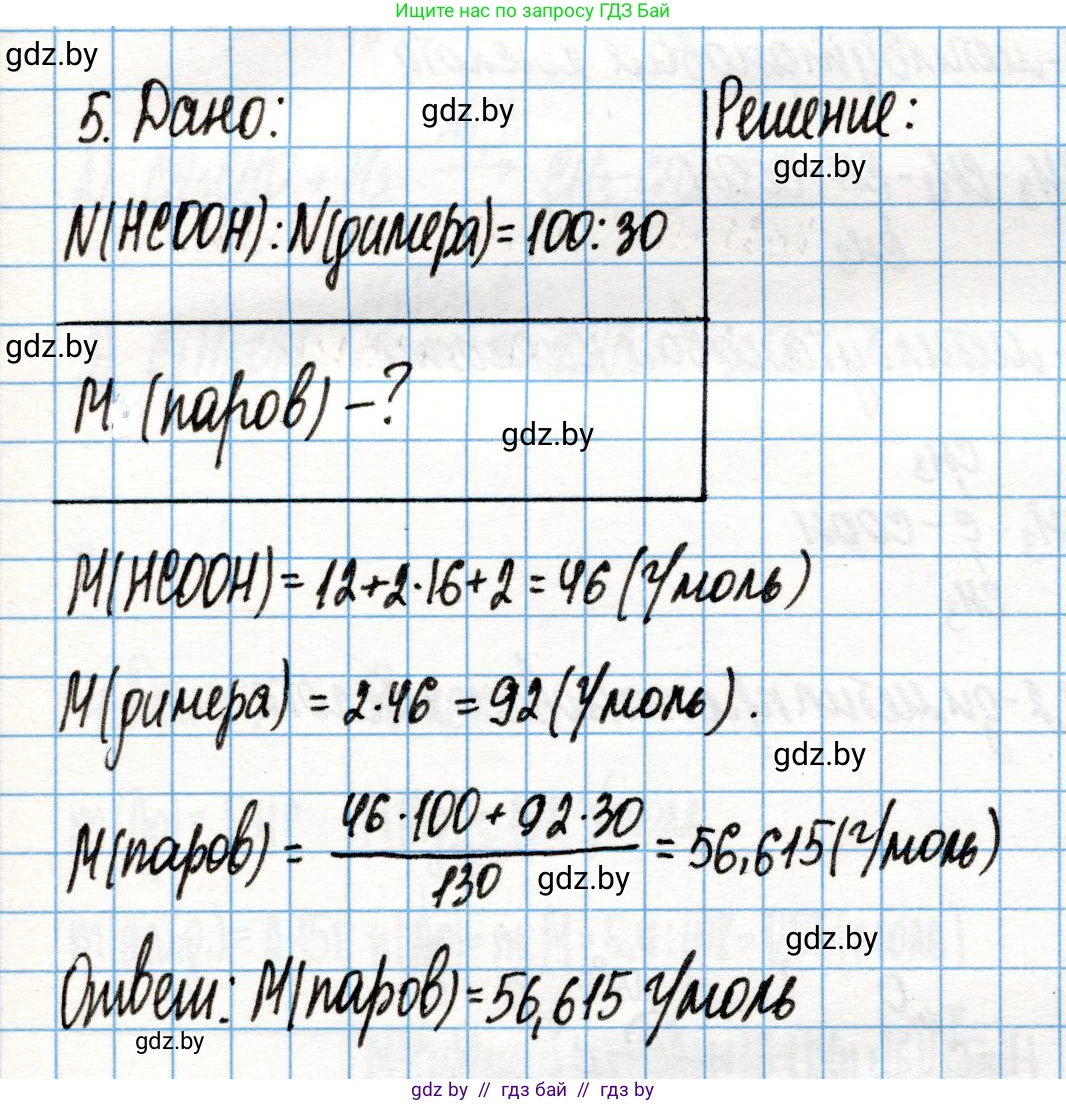 Ищите нас по запросу ГДЗ Бай
gdz.by
5. Дано:
gdz.by
Решение:
gdz.by
N(HCOOH):N(димера)=100:30
gdz.by
M (паров) –?
gdz.by
M(HCOOH)=12+2·16+2=46(г/моль)
M(димера)=2·46=92(г/моль).
gdz.by
M(паров) = \frac{46·100+92·30}{130} = 56,615(г/моль)
gdz.by
gdz.by
Ответ: M(паров)=56,615 г/моль
gdz.by
gdz by // гдз бай // гдз by